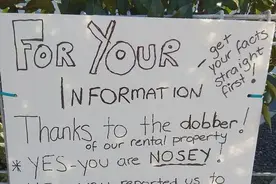 FOR YOUR
INFORMATION
- get
your facts
straight
first!
Thanks to the dobber!
of our rental property
* YES - you are NOSEY!
you reported us to